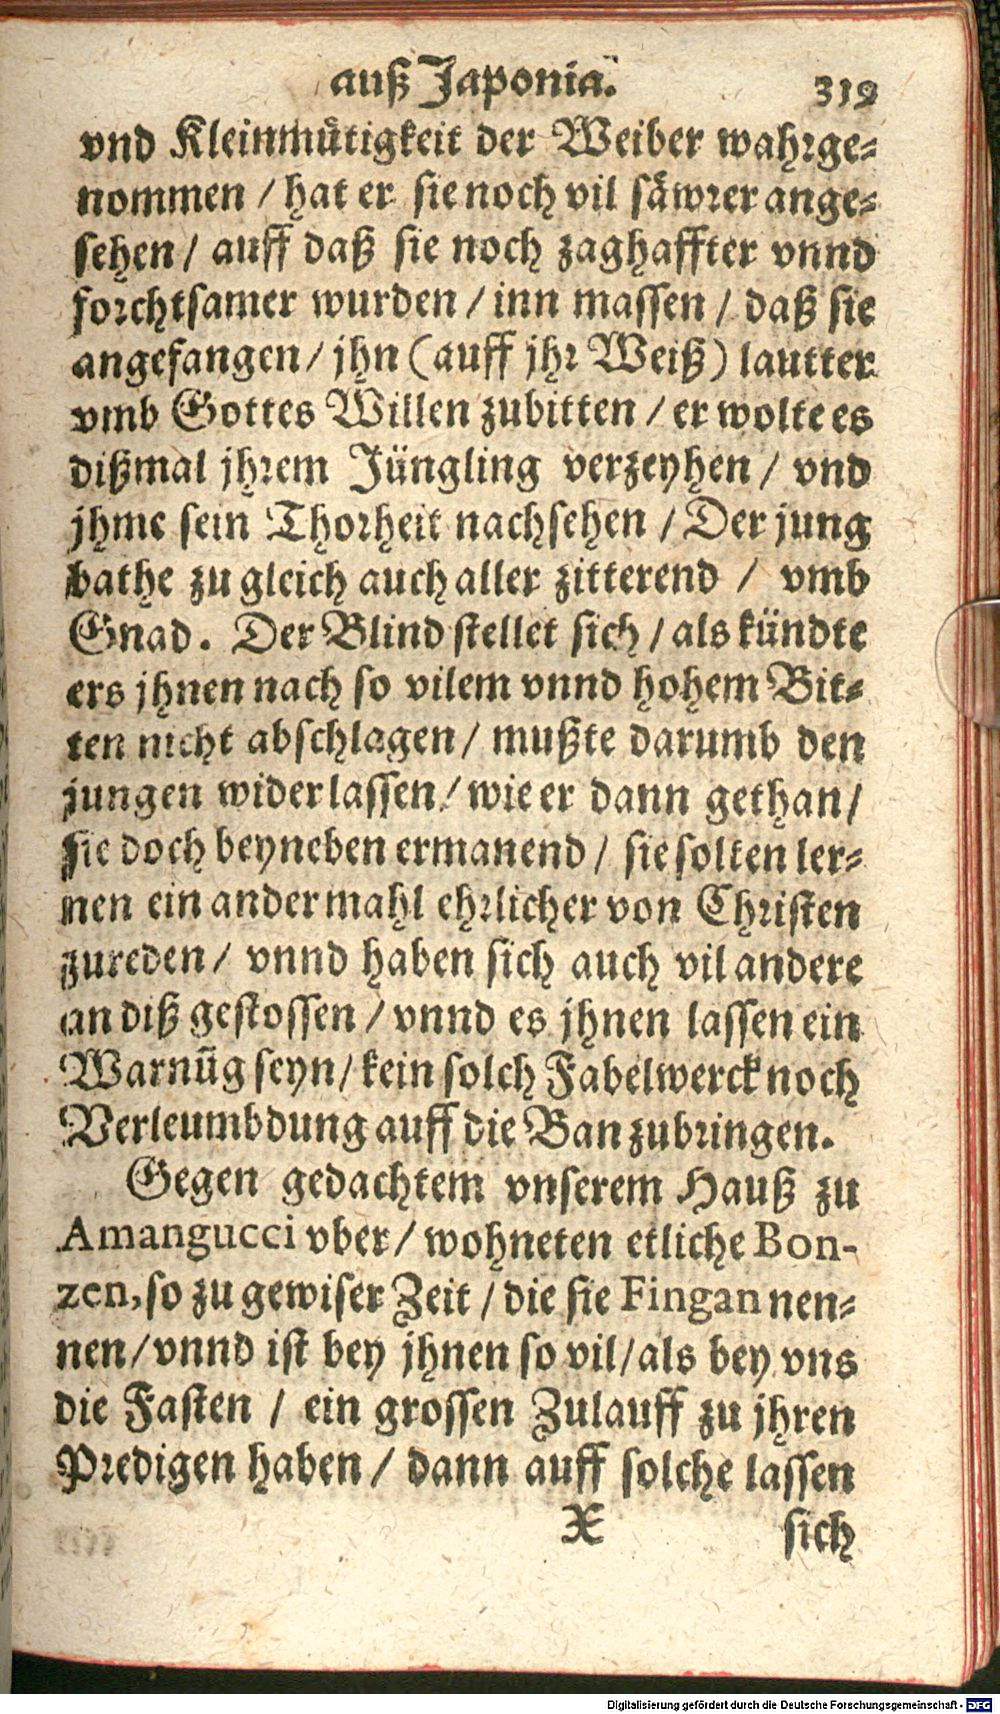 auß Japonia. 319
vnd Kleinmütigkeit der Weiber wahrge-
nommen / hat er sie noch vil säwrer ange-
sehen / auff daß sie noch zaghaffter vnnd
forchtsamer wurden / inn massen / daß sie
angefangen / jhn (auff jhr Weiß) lautter
vmb Gottes Willen zubitten / er wolte es
dißmal jhrem Jüngling verzeyhen / vnd
jhme sein Thorheit nachsehen / Der jung
bathe zu gleich auch aller zitterend / vmb
Gnad. Der Blind stellet sich / als kündte
ers jhnen nach so vilem vnnd hohem Bit-
ten nicht abschlagen / mußte darumb den
jungen wider lassen / wie er dann gethan /
sie doch beyneben ermanend / sie solten ler-
nen ein ander mahl ehrlicher von Christen
zureden / vnnd haben sich auch vil andere
an diß gestossen / vnnd es jhnen lassen ein
Warnūg seyn / kein solch Fabelwerck noch
Verleumbdung auff die Ban zubringen.
Gegen gedachtem vnserem Hauß zu
Amangucci vber / wohneten etliche Bon-
zen, so zu gewiser Zeit / die sie Fingan nen-
nen / vnnd ist bey jhnen so vil / als bey vns
die Fasten / ein grossen Zulauff zu jhren
Predigen haben / dann auff solche lassen
X sich
Digitalisierung gefördert durch die Deutsche Forschungsgemeinschaft - DFG